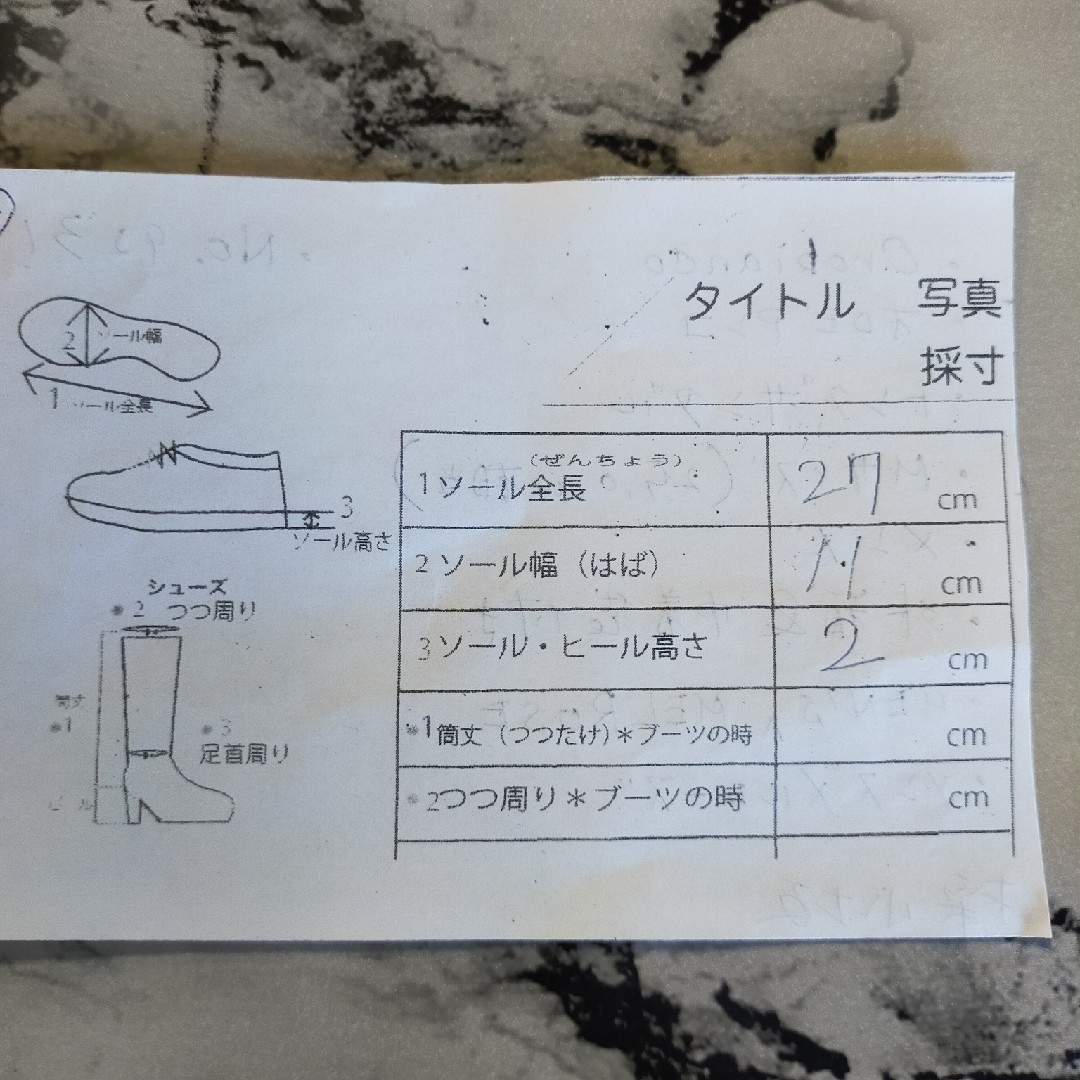 タイトル 写真
採寸
2 ソール幅
1 ソール全長
3
ソール高さ
シューズ
2 つつ周り
筒丈
1
3
足首周り
(ぜんちょう)
1ソール全長 27 cm
2ソール幅 (はば) 11 cm
3ソール・ヒール高さ 2 cm
1筒丈 (つつたけ)*ブーツの時 cm
2つつ周り*ブーツの時 cm